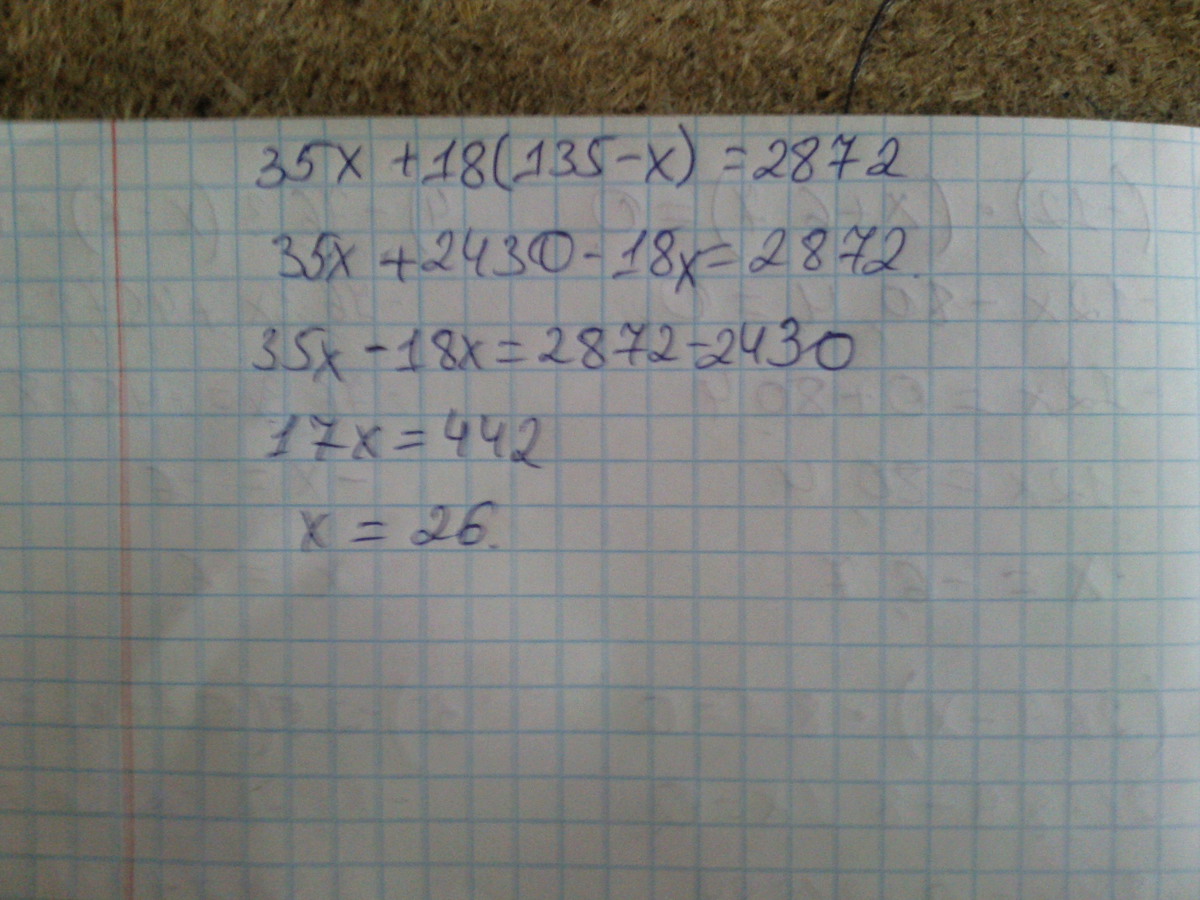 35x + 18(135 - x) = 2872
35x + 2430 - 18x = 2872.
35x - 18x = 2872 - 2430
17x = 442
x = 26.